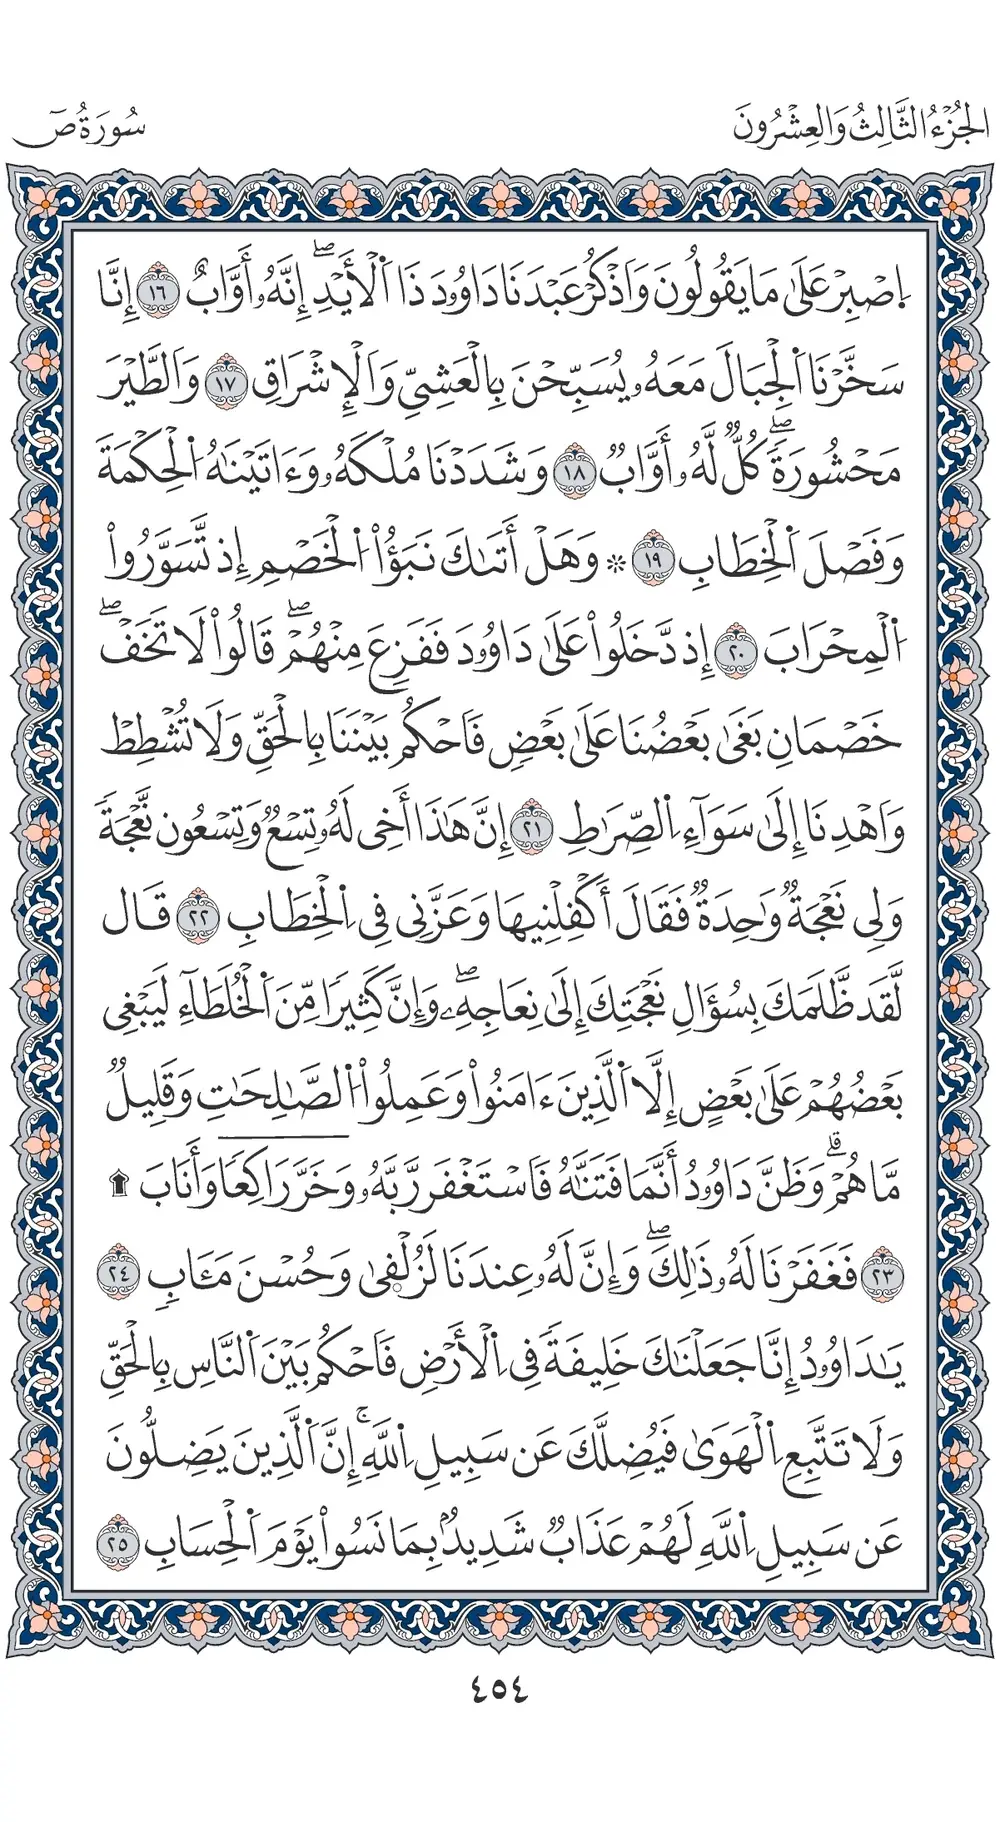 الجُزْءُ الثَّالِثُ وَالعِشْرُونَ
سُورَةُ صٓ
اِ۪صْبِرْ عَلَىٰ مَا يَقُولُونَ وَاَذْكُرْ عَبْدَنَا دَاوُۥدَ ذَا اَ۬لْأَيْدِۖ إِنَّهُۥ أَوَّابٌ ١٦ إِنَّا
سَخَّرْنَا اَ۬لْجِبَالَ مَعَهُۥ يُسَبِّحْنَ بِالْعَشِيِّ وَالْإِشْرَاقِ ١٧ وَالطَّيْرَ
مَحْشُورَةٗۖ كُلّٞ لَّهُۥ أَوَّابٞ ١٨ وَشَدَدْنَا مُلْكَهُۥ وَءَاتَيْنَٰهُ اُ۬لْحِكْمَةَ
وَفَصْلَ اَ۬لْخِطَابِ ١٩ ۞ وَهَلْ أَتَىٰكَ نَبَؤُاْ اُ۬لْخَصْمِ إِذ تَّسَوَّرُواْ
اُ۬لْمِحْرَابَ ٢٠ إِذ دَّخَلُواْ عَلَىٰ دَاوُۥدَ فَفَزِعَ مِنْهُمْۖ قَالُواْ لَا تَخَفْۖ
خَصْمَانِ بَغَىٰ بَعْضُنَا عَلَىٰ بَعْضٖ فَاحْكُم بَيْنَنَا بِالْحَقِّ وَلَا تُشْطِطْ
وَاَهْدِنَا إِلَىٰ سَوَآءِ اِ۬لصِّرَٰطِ ٢١ إِنَّ هَٰذَا أَخِى لَهُۥ تِسْعٞ وَتِسْعُون نَّعْجَةٗ
وَلِى نَعْجَةٞ وَٰحِدَةٞ فَقَالَ أَكْفِلْنِيهَا وَعَزَّنِى فِى اِ۬لْخِطَابِ ٢٢ قَال
لَّقَد ظَّلَمَكَ بِسُؤَالِ نَعْجَتِكَ إِلَىٰ نِعَاجِهِۦۖ وَإِنَّ كَثِيرٗا مِّنَ اَ۬لْخُلَطَآءِ لَيَبْغِى
بَعْضُهُمْ عَلَىٰ بَعْضٍ إِلَّا اَ۬لَّذِينَ ءَامَنُواْ وَعَمِلُواْ اُ۬لصَّٰلِحَٰتِ وَقَلِيلٞ
مَّا هُمْۗ وَظَنَّ دَاوُۥدُ أَنَّمَا فَتَنَّٰهُ فَاسْتَغْفَر رَّبَّهُۥ وَخَرَّ رَاكِعٗا وَأَنَابَ ۩
٢٣ فَغَفَرْنَا لَهُۥ ذَٰلِكَۖ وَإِنَّ لَهُۥ عِندَنَا لَزُلْفٜىٰ وَحُسْنَ مَـَٔابٖ ٢٤
يَٰدَاوُۥدُ إِنَّا جَعَلْنَٰكَ خَلِيفَةٗ فِى اِ۬لْأَرْضِ فَاحْكُم بَيْنَ اَ۬لنَّاسِ بِالْحَقِّ
وَلَا تَتَّبِعِ اِ۬لْهَوَىٰ فَيُضِلَّكَ عَن سَبِيلِ اِ۬للَّهِۚ إِنَّ اَ۬لَّذِينَ يَضِلُّونَ
عَن سَبِيلِ اِ۬للَّهِ لَهُمْ عَذَابٞ شَدِيدُۢ بِمَا نَسُواْ يَوْمَ اَ۬لْحِسَابِ ٢٥
٤٥٤